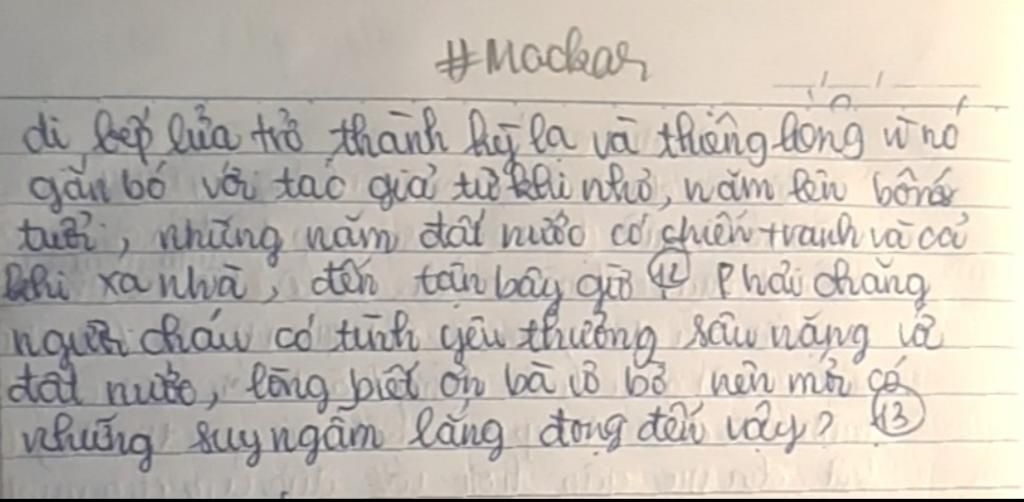 #Mackar
đi, bếp lửa trở thành kỳ lạ và thiêng liêng vì nó
gắn bó với tác giả từ khi nhỏ, năm lên bốn
tuổi, những năm đất nước có chiến tranh và cả
khi xa nhà, đến tận bây giờ (12) Phải chăng
người cháu có tình yêu thương sâu nặng với
đất nước, lòng biết ơn bà vô bờ nên mới có
những suy ngẫm lắng đọng đến vậy? (13)